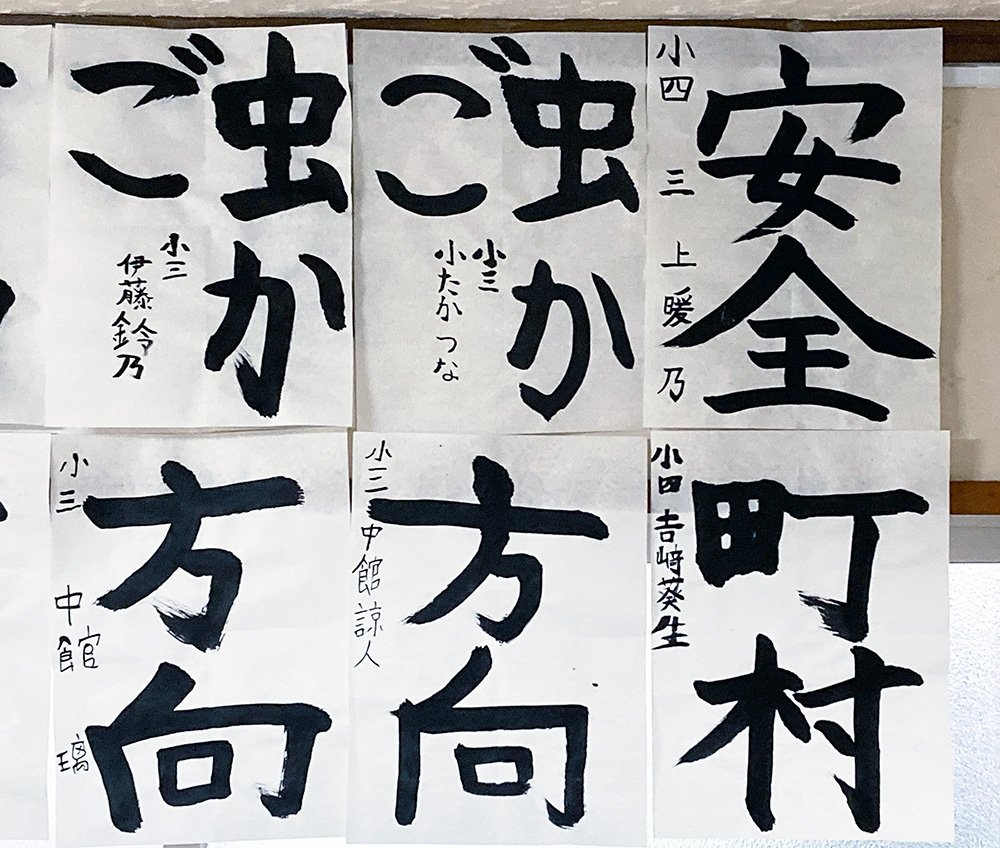 安全
小四 三上暖乃
虫かご
小三
小たか つな
虫かご
小三
伊藤鈴乃
町村
小四 吉﨑葵生
方向
小三 中館諒人
方向
小三 中館 璃